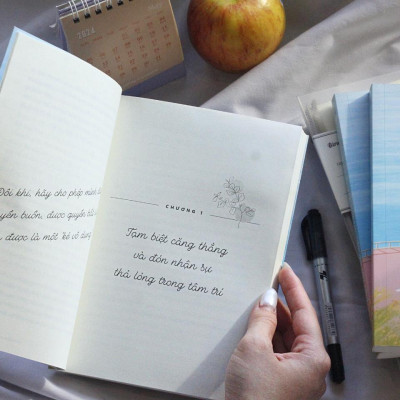 2024
Đôi khi, hãy cho phép mình
buồn, được quyền
được là một
CHƯƠNG 1
Tạm biệt căng thẳng
và đón nhận sự
thả lỏng trong tâm trí